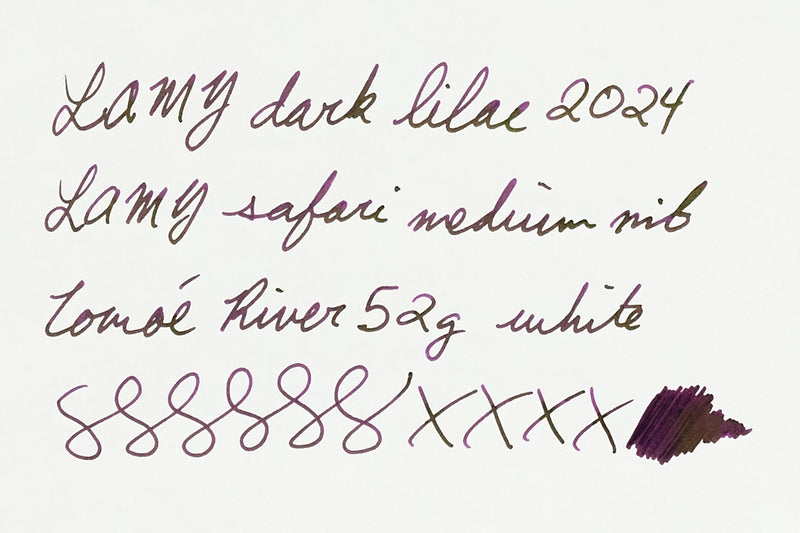 LAMY dark lilac 2024
LAMY safari medium nib
Tomoé River 52g white
XXXX